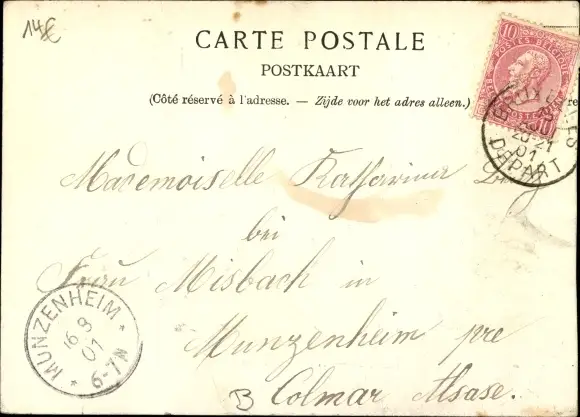 14€
CARTE POSTALE
POSTKAART
(Côté réservé à l'adresse. — Zijde voor het adres alleen.)
10 10
POSTES BELGIQUE
DEPART
20-21
01
Mademoiselle Katharina
bei
Frau Misbach in
Munzenheim pre
Colmar Alsase.
B
MUNZENHEIM
16 9
01
6-7N